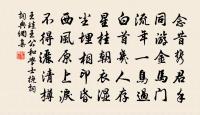 念昔攜君手
同游金馬門
流年一鳥過
白首幾人存
星桂朝衣濕
塵埋相印昏
西風原上淚
不得灑清樽
王珪王公和學士挽詞
詞典網集